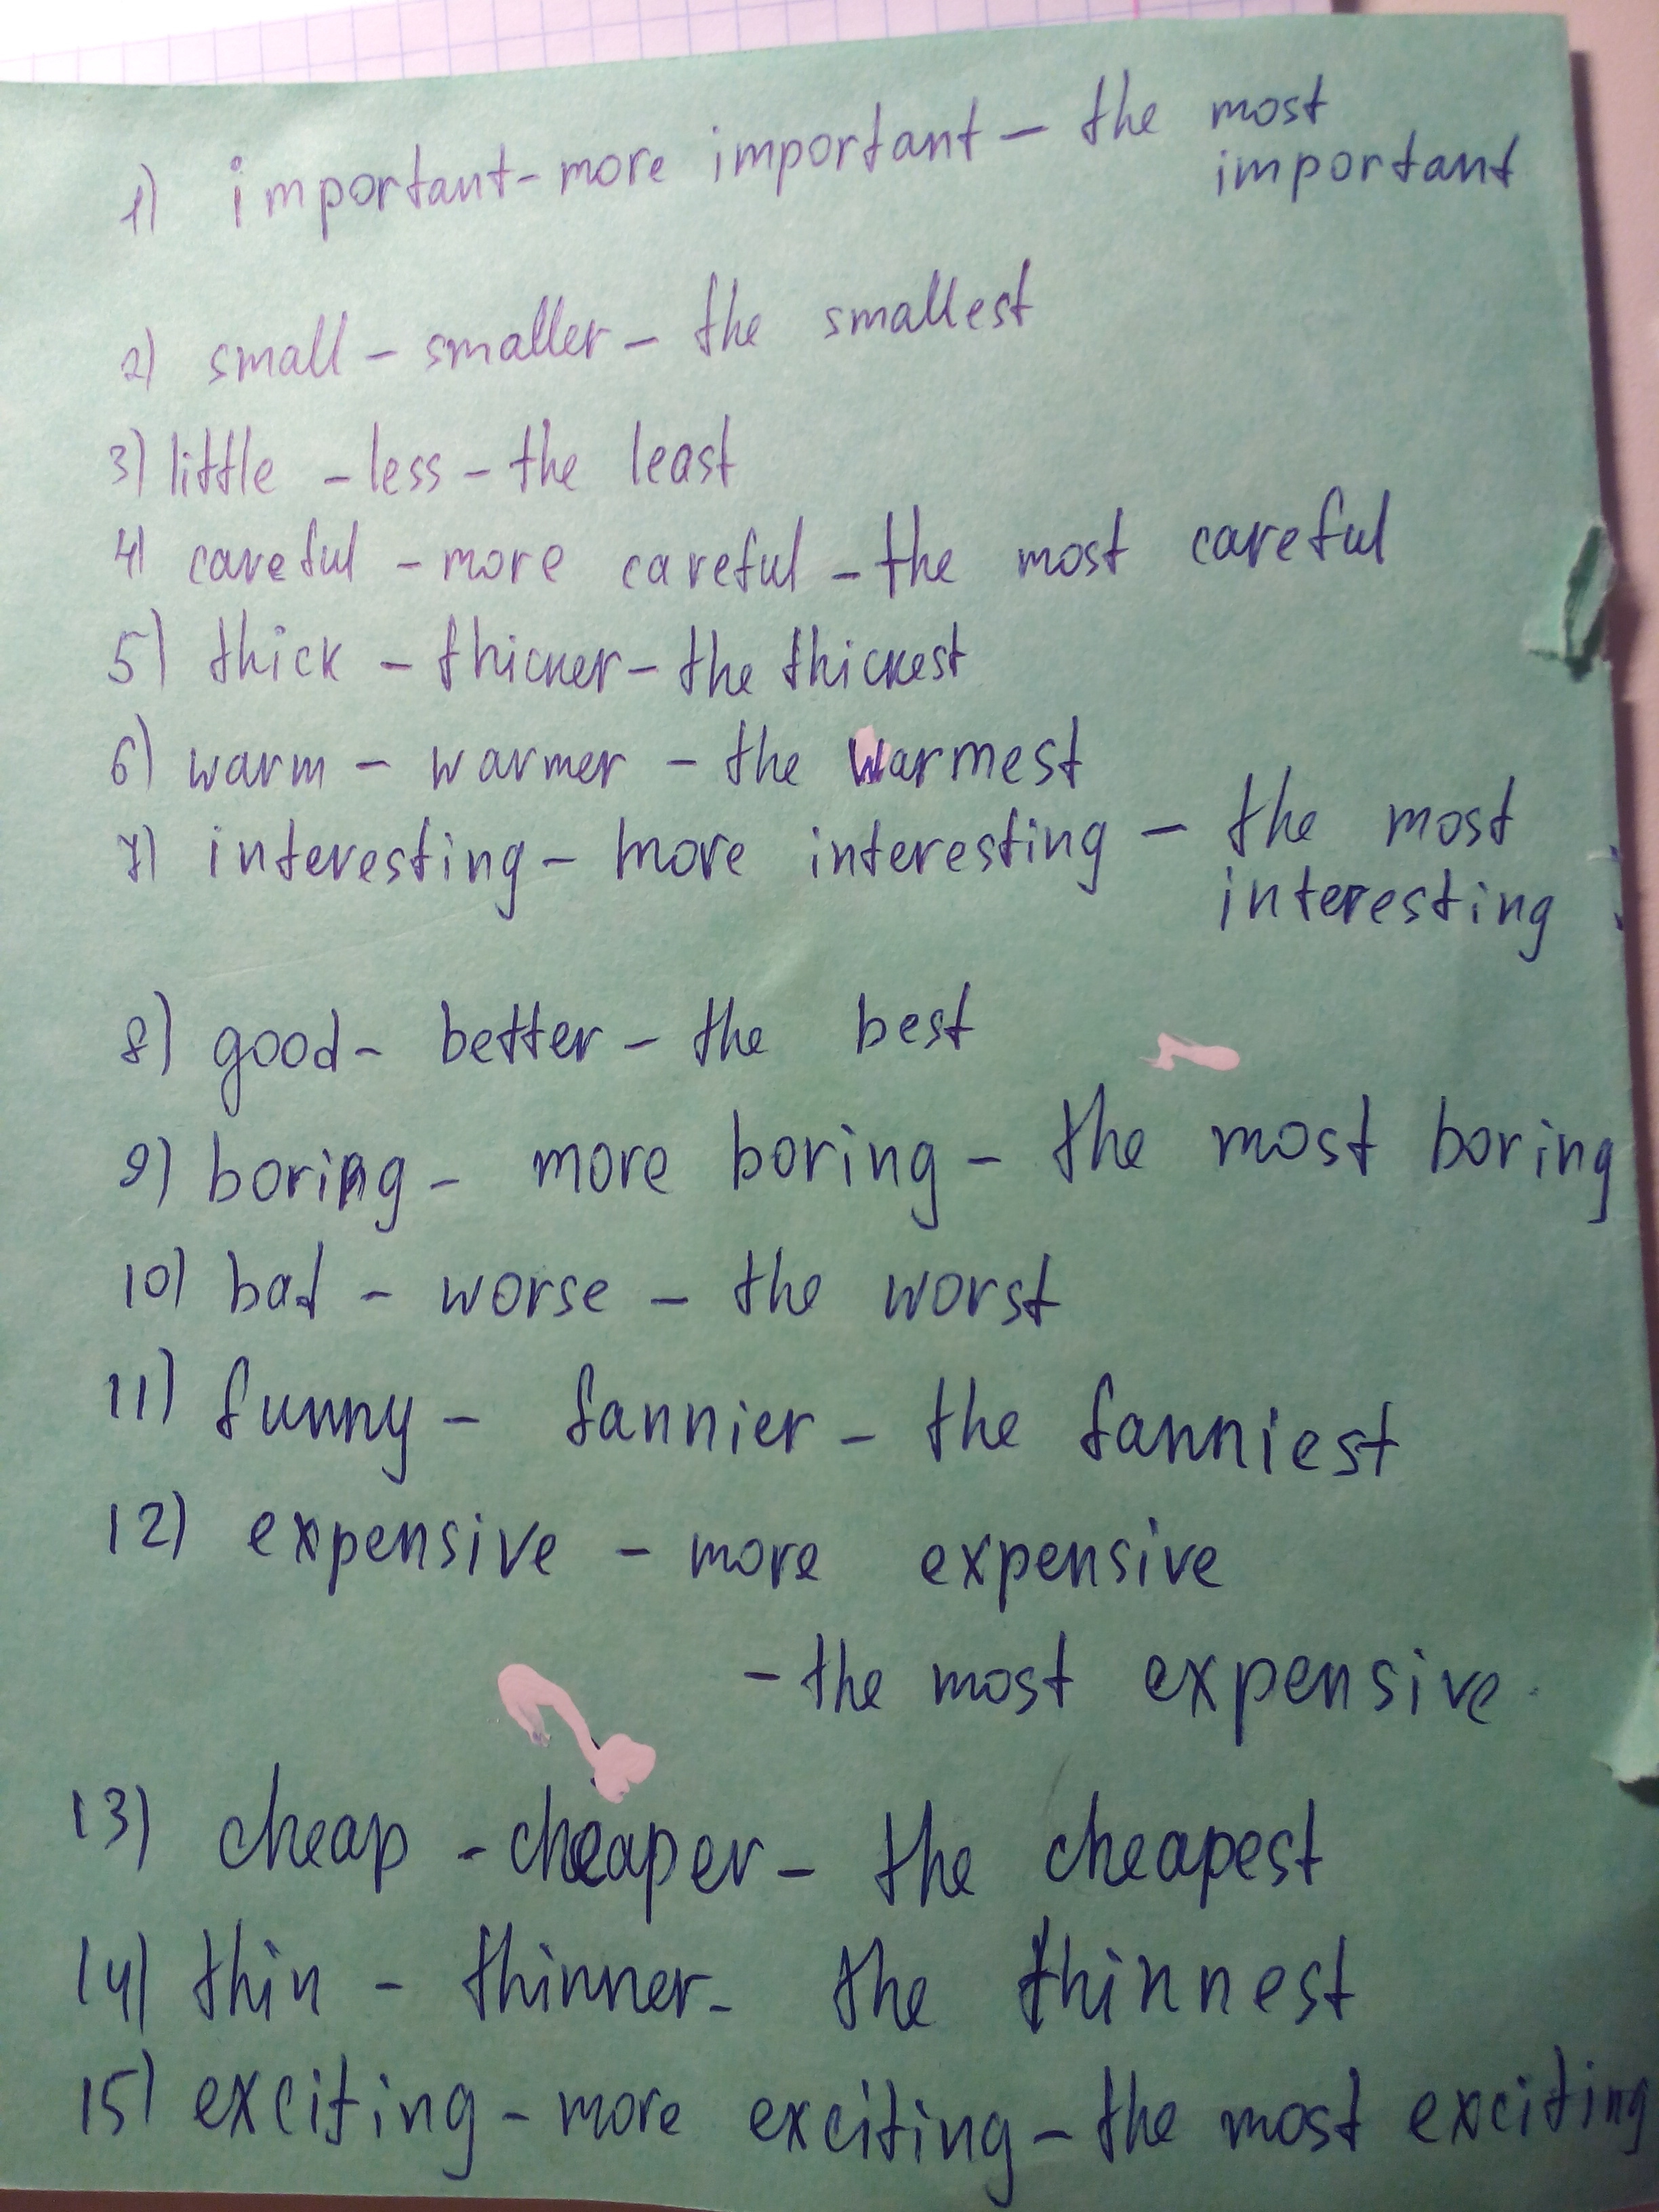 1) important - more important - the most
important
2) small - smaller - the smallest
3) little - less - the least
4) careful - more careful - the most careful
5) thick - thicker - the thickest
6) warm - warmer - the warmest
7) interesting - more interesting - the most
interesting
8) good - better - the best
9) boring - more boring - the most boring
10) bad - worse - the worst
11) funny - fannier - the fanniest
12) expensive - more expensive
- the most expensive.
13) cheap - cheaper - the cheapest
14) thin - thinner - the thinnest
15) exciting - more exciting - the most exciting